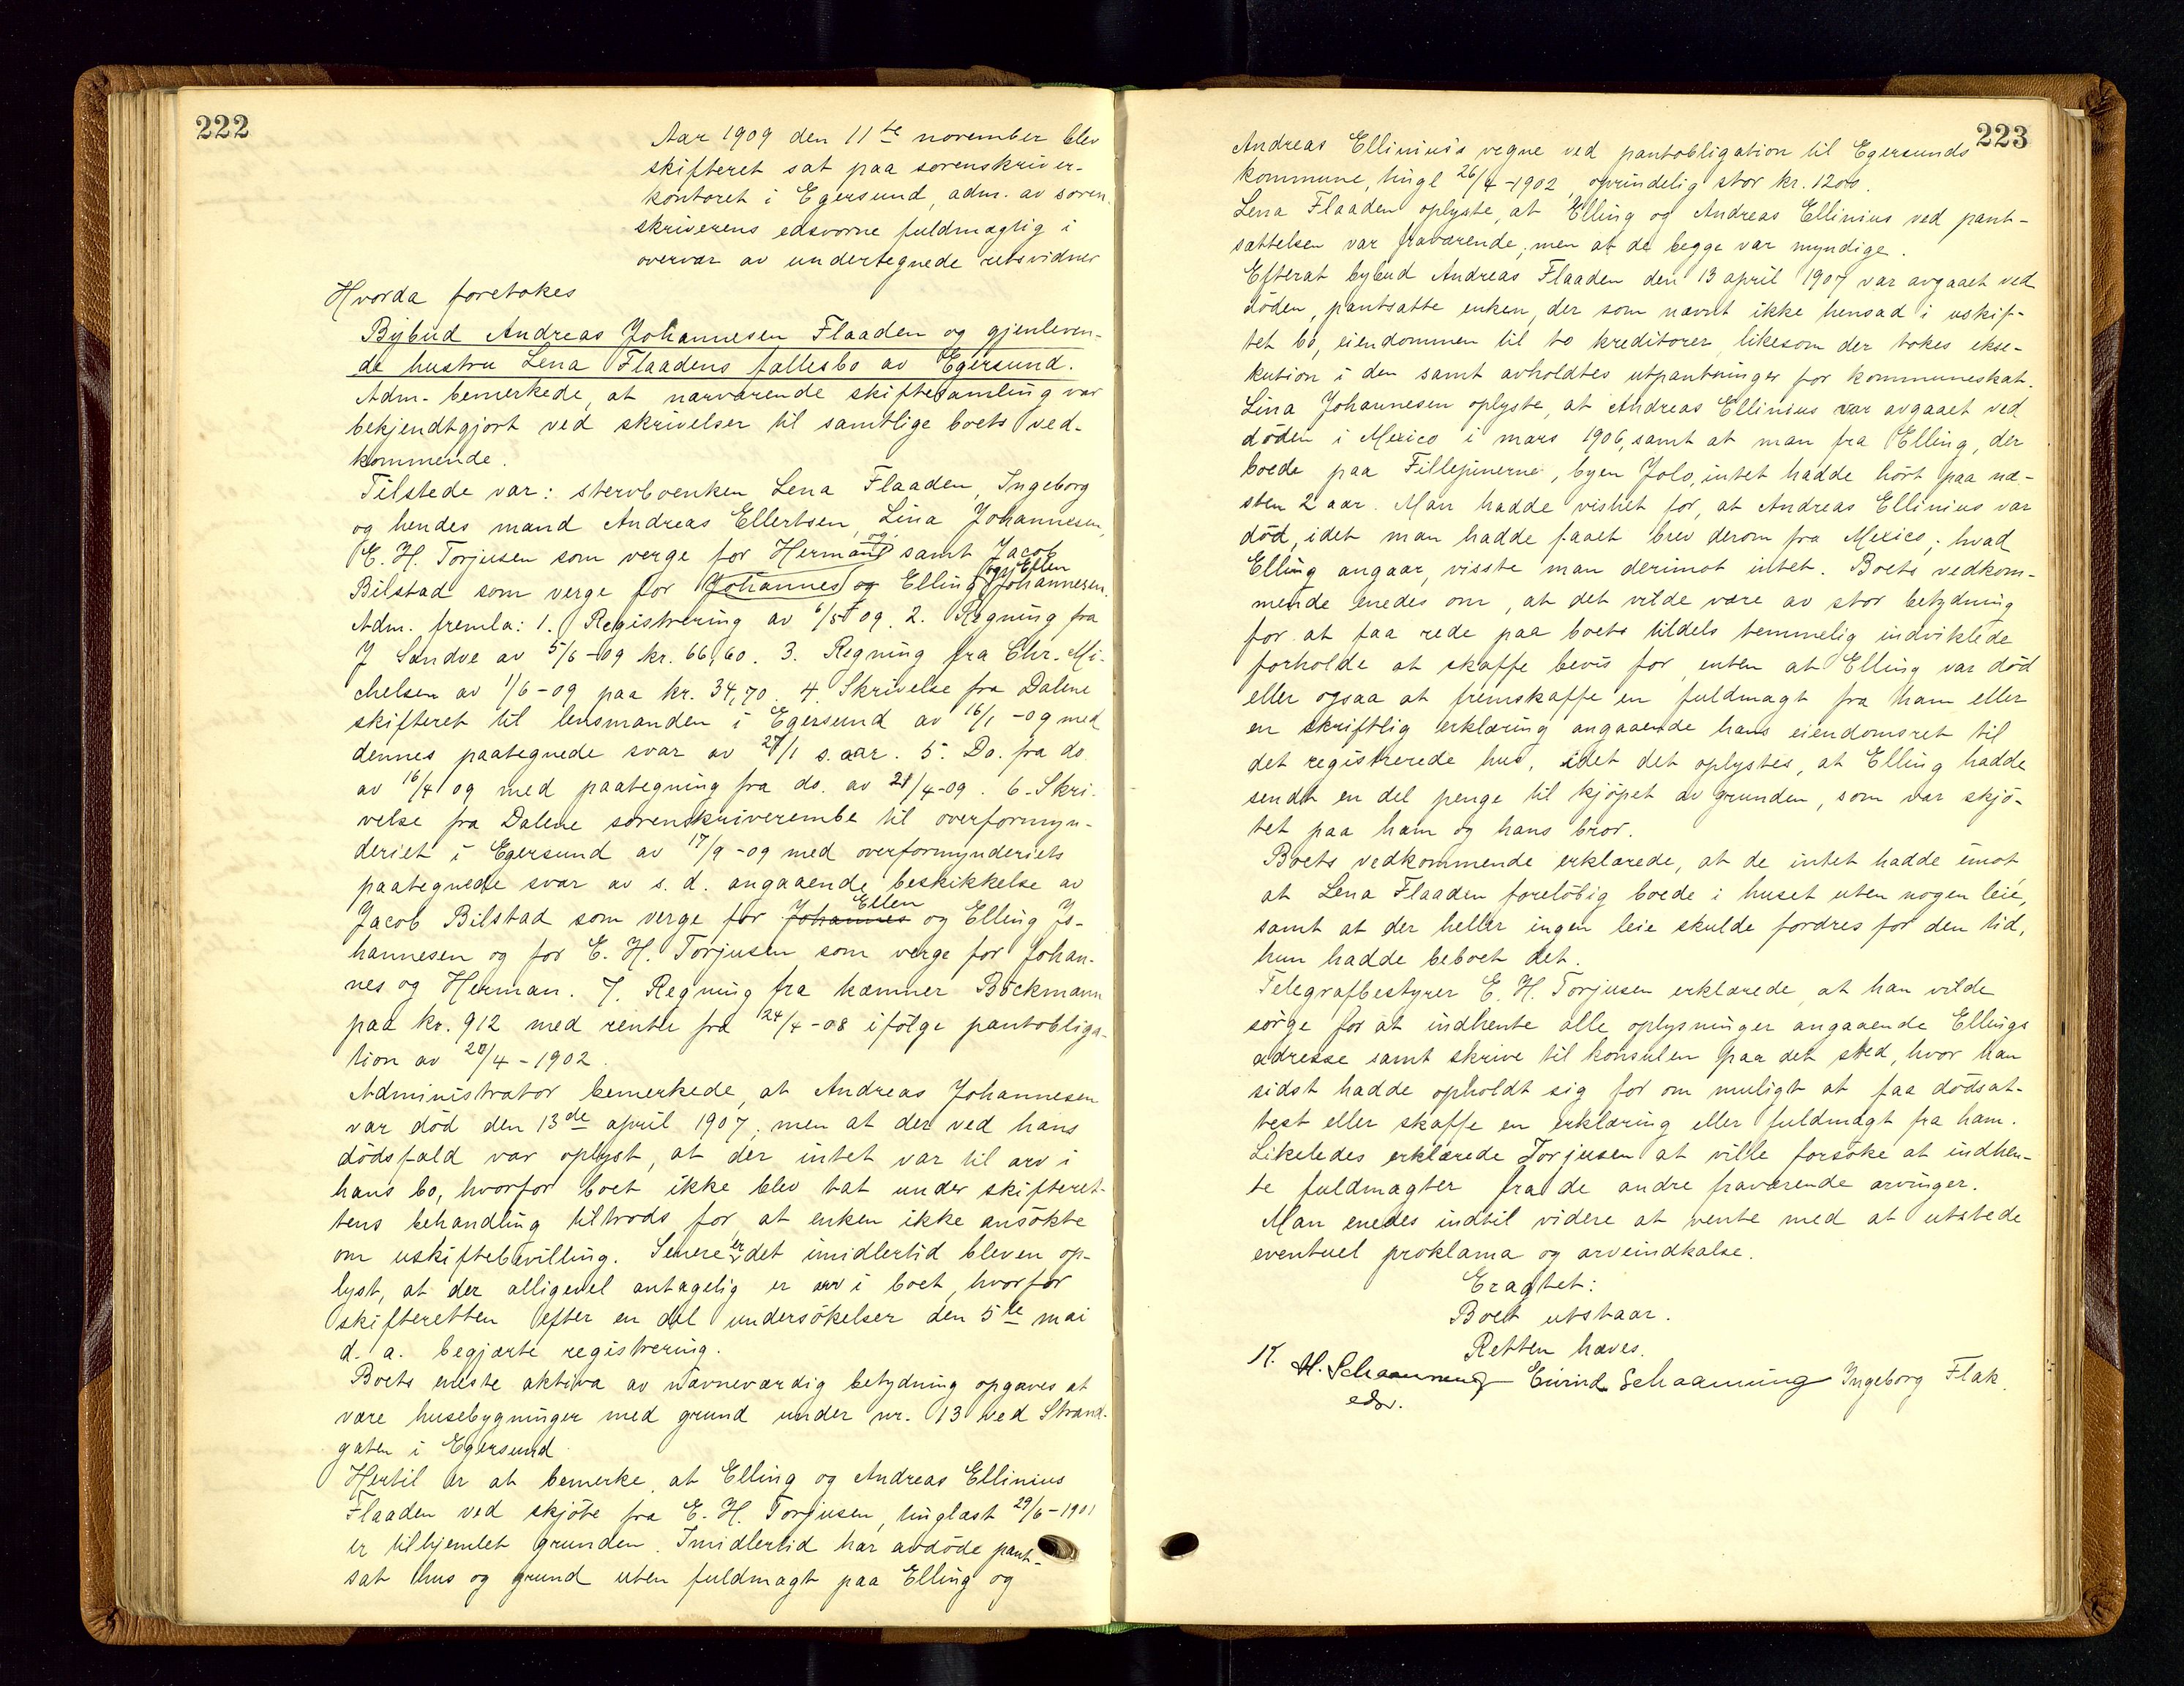 222
Aar 1909 den 11te november blev
skifteret sat paa sorenskriver-
kontoret i Egersund, adm. av soren-
skriverens edsvorne fuldmægtig i
overvær av undertegnede retsvidner
Hvorda foretokes
Bybud Andreas Johannesen Flaaden og gjenleven-
de hustru Lena Flaadens fællesbo av Egersund.
Adm. bemerkede, at nærværende skiftesamling var
bekjendtgjort ved skrivelser til samtlige boets ved-
kommende.
Tilstede var: stervboenken Lena Flaaden, Ingeborg
og hendes mand Andreas Ellertsen, Lina Johannesen,
E. H. Torjusen som verge for Herman og samt Jacob
Bilstad som verge for Johannes og Elling og Ellen Johannesen.
Adm. fremla: 1. Registrering av 6/5 09. 2. Regning fra
J Sandve av 5/6-09 kr. 66,60. 3. Regning fra Chr. Mi-
chelsen av 1/6-09 paa kr. 34,70. 4. Skrivelse fra Dalene
skifteret til lensmanden i Egersund av 16/1-09 med
dennes paategnede svar av 27/1 s. aar. 5. Do. fra do
av 16/4 09 med paategning fra do. av 21/4-09. 6. Skri-
velse fra Dalene sorenskriverembe til overformyn-
deriet i Egersund av 17/9-09 med overformynderiets
paategnede svar av s. d. angaaende beskikkelse av
Jacob Bilstad som verge for Johannes Ellen og Elling Jo-
hannesen og for E. H. Torjusen som verge for Johan-
nes og Herman. 7. Regning fra kæmner Böckmann
paa kr. 912 med renter fra 24/4-08 ifölge pantobliga-
tion av 20/4-1902.
Administrator bemerkede, at Andreas Johannesen
var död den 13de april 1907, men at der ved hans
dödsfald var oplyst, at der intet var til arv i
hans bo, hvorfor boet ikke blev tat under skifteret-
tens behandling tiltrods for at enken ikke ansökte
om uskiftebevilling. Senere er det imidlertid bleven op-
lyst, at der alligevel antagelig er arv i boet, hvorfor
skifteretten efter en del undersökelser den 5te mai
d. a. begjærte registrering.
Boets eneste aktiva av nævneværdig betydning opgaves at
være husebygninger med grund under nr. 13 ved Strand-
gaten i Egersund
Hertil er at bemerke, at Elling og Andreas Ellinius
Flaaden ved skjöte fra E. H. Torjusen, tinglæst 29/6-1901
er tilhjemlet grunden. Imidlertid har avdöde pant-
sat hus og grund uten fuldmagt paa Elling og
223
Andreas Ellinius's vegne ved pantobligation til Egersunds
kommune, tingl 26/4-1902, oprindelig stor kr. 1200.
Lena Flaaden oplyste, at Elling og Andreas Ellinius ved pant-
sættelsen var fraværende, men at de begge var myndige.
Efterat bybud Andreas Flaaden den 13 april 1907 var avgaaet ved
döden, pantsatte enken, der som nævnt ikke hensad i uskif-
tet bo, eiendommen til to kreditorer, likesom der tokes ekse-
kution i den samt avholdtes utpantninger for kommuneskat.
Lina Johannesen oplyste, at Andreas Ellinius var avgaaet ved
döden i Mexico i mars 1906, samt at man fra Elling, der
boede paa Fillepinerne, byen Jolo, intet hadde hört paa næ-
sten 2 aar. Man hadde vished for, at Andreas Ellinius var
död, idet man hadde faaet brev derom fra Mexico; hvad
Elling angaar, visste man derimot intet. Boets vedkom-
mende enedes om, at det vilde være av stor betydning
for at faa rede paa boets tildels temmelig indviklede
forholde at skaffe bevis for enten at Elling var död
eller ogsaa at fremskaffe en fuldmagt fra ham eller
en skriftlig erklæring angaaende hans eiendomsret til
det registrerede hus, idet det oplystes, at Elling hadde
sendt en del penge til kjöpet av grunden, som var skjö-
tet paa ham og hans bror.
Boets vedkommende erklærede, at de intet hadde imot,
at Lena Flaaden forelöbig boede i huset uten nogen leie,
samt at der heller ingen leie skulde fordres for den tid,
hun hadde beboet det.
Telegrafbestyrer E. H. Torjusen erklærede, at han vilde
sörge for at indhente alle oplysninger angaaende Ellings
adresse samt skrive til konsulen paa det sted, hvor han
sidst hadde opholdt sig for om muligt at faa dödsat-
test eller skaffe en erklæring eller fuldmagt fra ham.
Likeledes erklærede Torjusen at ville forsöke at indhen-
te fuldmagter fra de andre fraværende arvinger.
Man enedes indtil videre at vente med at utstede
eventuel proklama og arveindkalse.
Eragtet:
Boet utstaar.
Retten hæves.
K. H. Schaanning Eivind Schaanning Ingeborg Flak.
edsv.